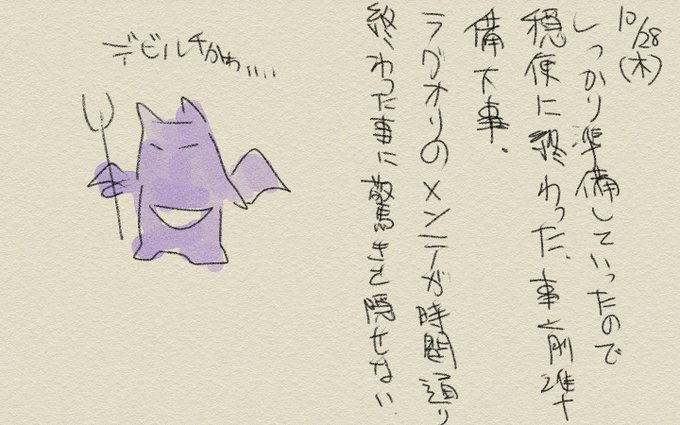 10/28
(木)
しっかり準備していったので
穏便に終わった、事前準
備大事.
ラグオリのメンテが時間通り
終わった事に驚きを隠せない
デビルチかわ....